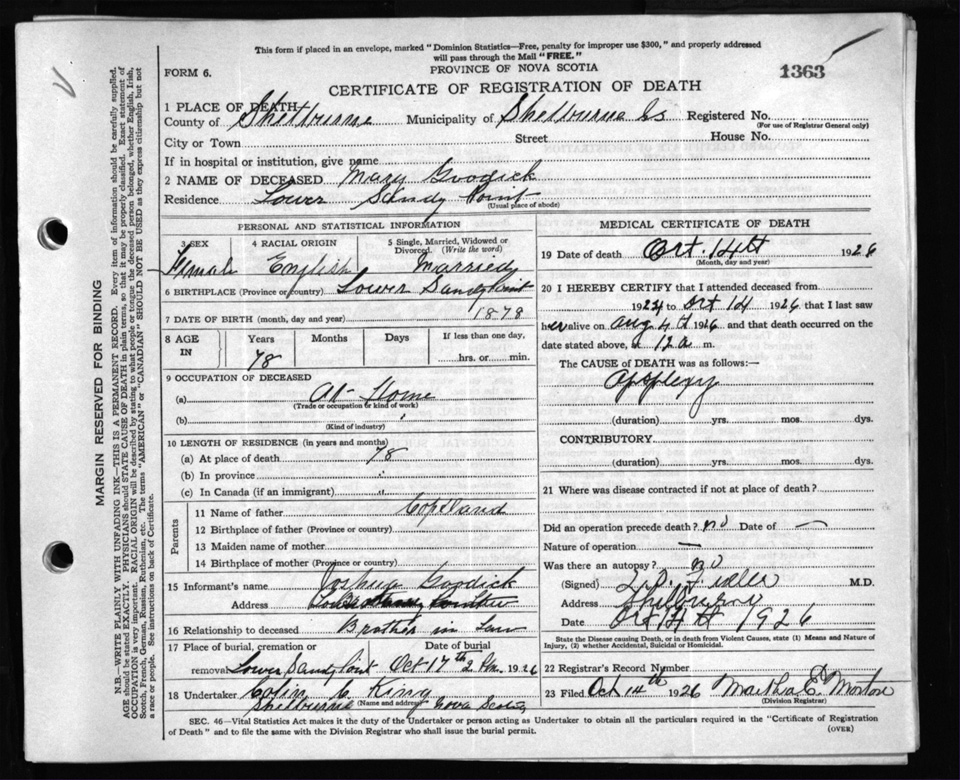 This form if placed in an envelope, marked "Dominion Statistics—Free, penalty for improper use $300," and properly addressed
will pass through the Mail "FREE."
PROVINCE OF NOVA SCOTIA
1363
FORM 6.
CERTIFICATE OF REGISTRATION OF DEATH
1 PLACE OF DEATH
County of Shelburne Municipality of Shelburne Co Registered No.
(For use of Registrar General only)
City or Town Street House No.
If in hospital or institution, give name
2 NAME OF DECEASED Mary Goodick
Residence Lower Sandy Point
(Usual place of abode)
PERSONAL AND STATISTICAL INFORMATION
3 SEX 4 RACIAL ORIGIN 5 Single, Married, Widowed or Divorced. (Write the word)
Female English Married
6 BIRTHPLACE (Province or country) Lower Sandy Point
7 DATE OF BIRTH (month, day and year) 1878
8 AGE IN Years Months Days If less than one day,
78 hrs. or min.
9 OCCUPATION OF DECEASED
(a) At Home
(Trade or occupation or kind of work)
(b)
(Kind of industry)
10 LENGTH OF RESIDENCE (in years and months)
(a) At place of death 78
(b) In province "
(c) In Canada (if an immigrant) "
Parents
11 Name of father Copeland
12 Birthplace of father (Province or country)
13 Maiden name of mother
14 Birthplace of mother (Province or country)
15 Informant's name Joshua Goodick
Address
16 Relationship to deceased Brother in Law
17 Place of burial, cremation or removal Lower Sandy Point Date of burial Oct 17th 2 P.m. 1926
18 Undertaker Colin C. King
Shelburne (Name and address) Nova Scotia
MEDICAL CERTIFICATE OF DEATH
19 Date of death Oct. 14th 1926
(Month, day and year)
20 I HEREBY CERTIFY that I attended deceased from
1924 to Oct 14 1926 that I last saw
her alive on Aug 4th 1926 and that death occurred on the
date stated above, at 12 a m.
The CAUSE OF DEATH was as follows:—
Apoplexy
(duration) yrs. mos. dys.
CONTRIBUTORY
(duration) yrs. mos. dys.
21 Where was disease contracted if not at place of death?
Did an operation precede death? no Date of —
Nature of operation —
Was there an autopsy? no
(Signed) Fidler M.D.
Address Shelburne
Date Oct 14th 1926
State the Disease causing Death, or in death from Violent Causes, state (1) Means and Nature of
Injury, (2) whether Accidental, Suicidal or Homicidal.
22 Registrar's Record Number
23 Filed Oct 14th 1926 Martha E. Morton
(Division Registrar)
SEC. 46—Vital Statistics Act makes it the duty of the Undertaker or person acting as Undertaker to obtain all the particulars required in the "Certificate of Registration
of Death" and to file the same with the Division Registrar who shall issue the burial permit.
(OVER)
MARGIN RESERVED FOR BINDING
N.B.—WRITE PLAINLY WITH UNFADING INK—THIS IS A PERMANENT RECORD. Every item of information should be carefully supplied.
AGE should be stated EXACTLY. PHYSICIANS should STATE CAUSE OF DEATH in plain terms, so that it may be properly classified. Exact statement of
OCCUPATION is very important. RACIAL ORIGIN will be described by stating to what people or tongue the deceased person belonged, whether English, Irish,
Scotch, French, German, Russian, Ruthenian, etc. The terms "AMERICAN" or "CANADIAN" SHOULD NOT BE USED as they express citizenship but not
a race or people. See instructions on back of Certificate.